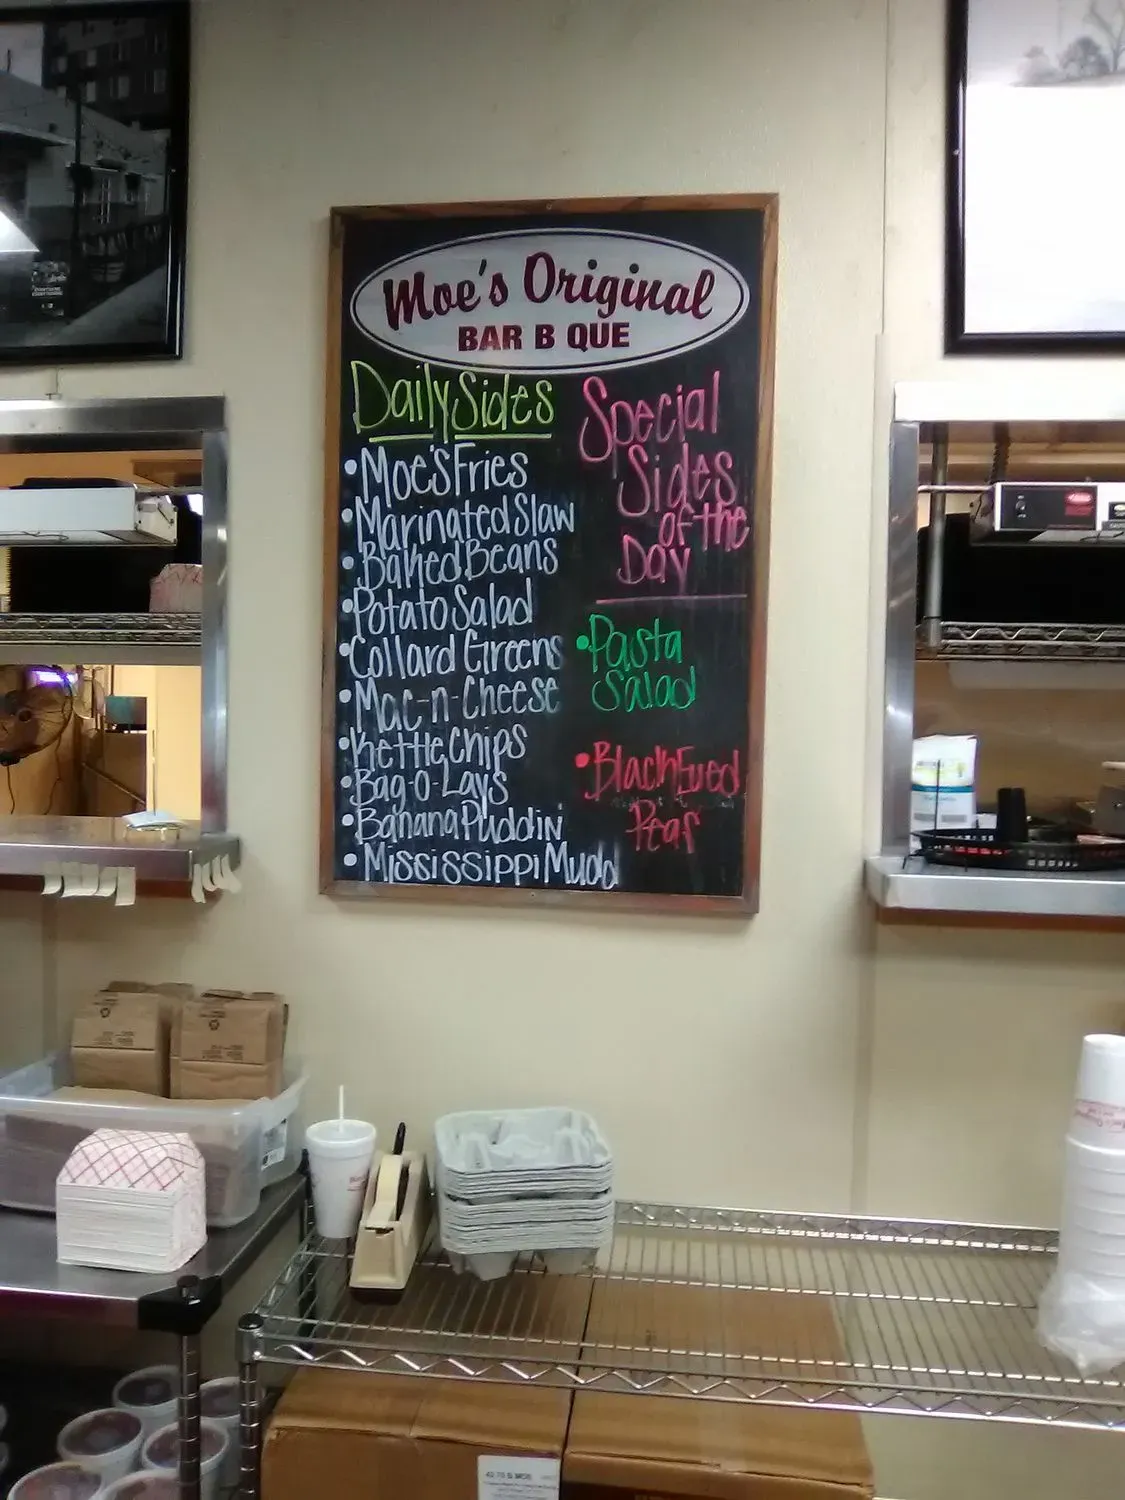 Moe's Original
BAR B QUE
Daily Sides
• Moe's Fries
• Marinated Slaw
• Baked Beans
• Potato Salad
• Collard Greens
• Mac-n-Cheese
• Kettle Chips
• Bag-O-Lays
• Banana Puddin
• Mississippi Mudd
Special
Sides
of the
Day
• Pasta
Salad
• Black Eyed
Peas